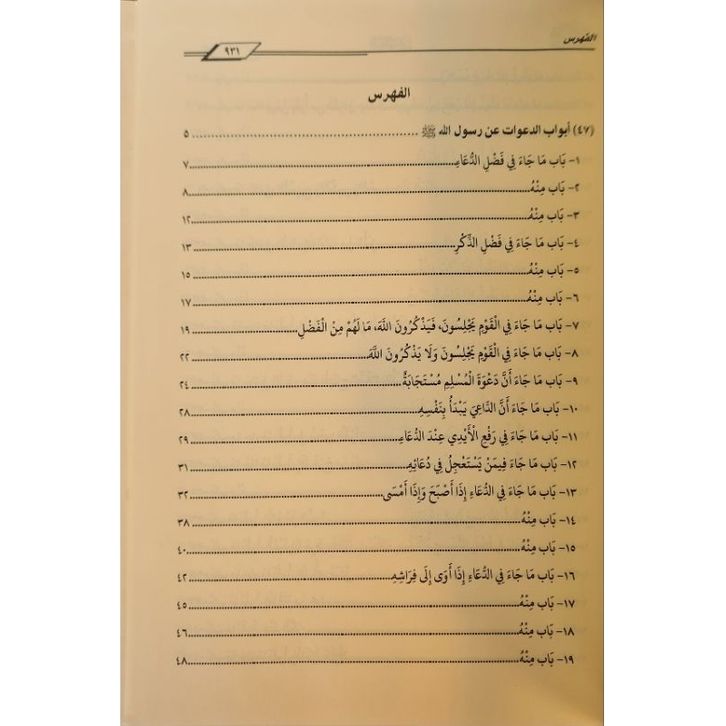 الفهرس
٩٣١
الفهرس
(٤٧) أبواب الدعوات عن رسول الله ﷺ ........ ٥
١- بَاب مَا جَاءَ فِي فَضْلِ الدُّعَاءِ ........ ٧
٢- بَاب مِنْهُ ........ ٨
٣- بَاب مِنْهُ ........ ١٢
٤- بَاب مَا جَاءَ فِي فَضْلِ الذِّكْرِ ........ ١٣
٥- بَاب مِنْهُ ........ ١٥
٦- بَاب مِنْهُ ........ ١٧
٧- بَاب مَا جَاءَ فِي الْقَوْمِ يَجْلِسُونَ، فَيَذْكُرُونَ اللَّهَ، مَا لَهُمْ مِنْ الْفَضْلِ ........ ١٩
٨- بَاب مَا جَاءَ فِي الْقَوْمِ يَجْلِسُونَ وَلَا يَذْكُرُونَ اللَّهَ ........ ٢٢
٩- بَاب مَا جَاءَ أَنَّ دَعْوَةَ الْمُسْلِمِ مُسْتَجَابَةٌ ........ ٢٤
١٠- بَاب مَا جَاءَ أَنَّ الدَّاعِيَ يَبْدَأُ بِنَفْسِهِ ........ ٢٨
١١- بَاب مَا جَاءَ فِي رَفْعِ الْأَيْدِي عِنْدَ الدُّعَاءِ ........ ٢٩
١٢- بَاب مَا جَاءَ فِيمَنْ يَسْتَعْجِلُ فِي دُعَائِهِ ........ ٣١
١٣- بَاب مَا جَاءَ فِي الدُّعَاءِ إِذَا أَصْبَحَ وَإِذَا أَمْسَى ........ ٣٢
١٤- بَاب مِنْهُ ........ ٣٨
١٥- بَاب مِنْهُ ........ ٤٠
١٦- بَاب مَا جَاءَ فِي الدُّعَاءِ إِذَا أَوَى إِلَى فِرَاشِهِ ........ ٤٢
١٧- بَاب مِنْهُ ........ ٤٥
١٨- بَاب مِنْهُ ........ ٤٦
١٩- بَاب مِنْهُ ........ ٤٨